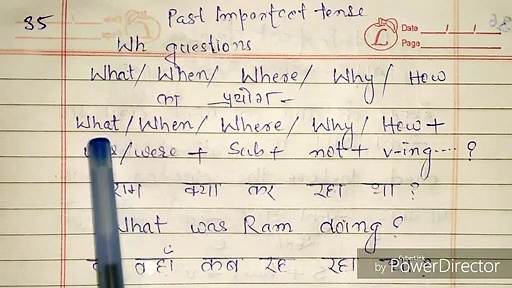 35
Past Imperfect tense
Date / /
Page
Wh questions
What/ When/ Where/ Why/ How
का प्रयोग -
What/When/ Where/ Why/ How +
/were + Sub + not + v-ing....?
राम क्या कर रहा था?
What was Ram doing?
वहाँ कब रह रहा
by PowerDirector